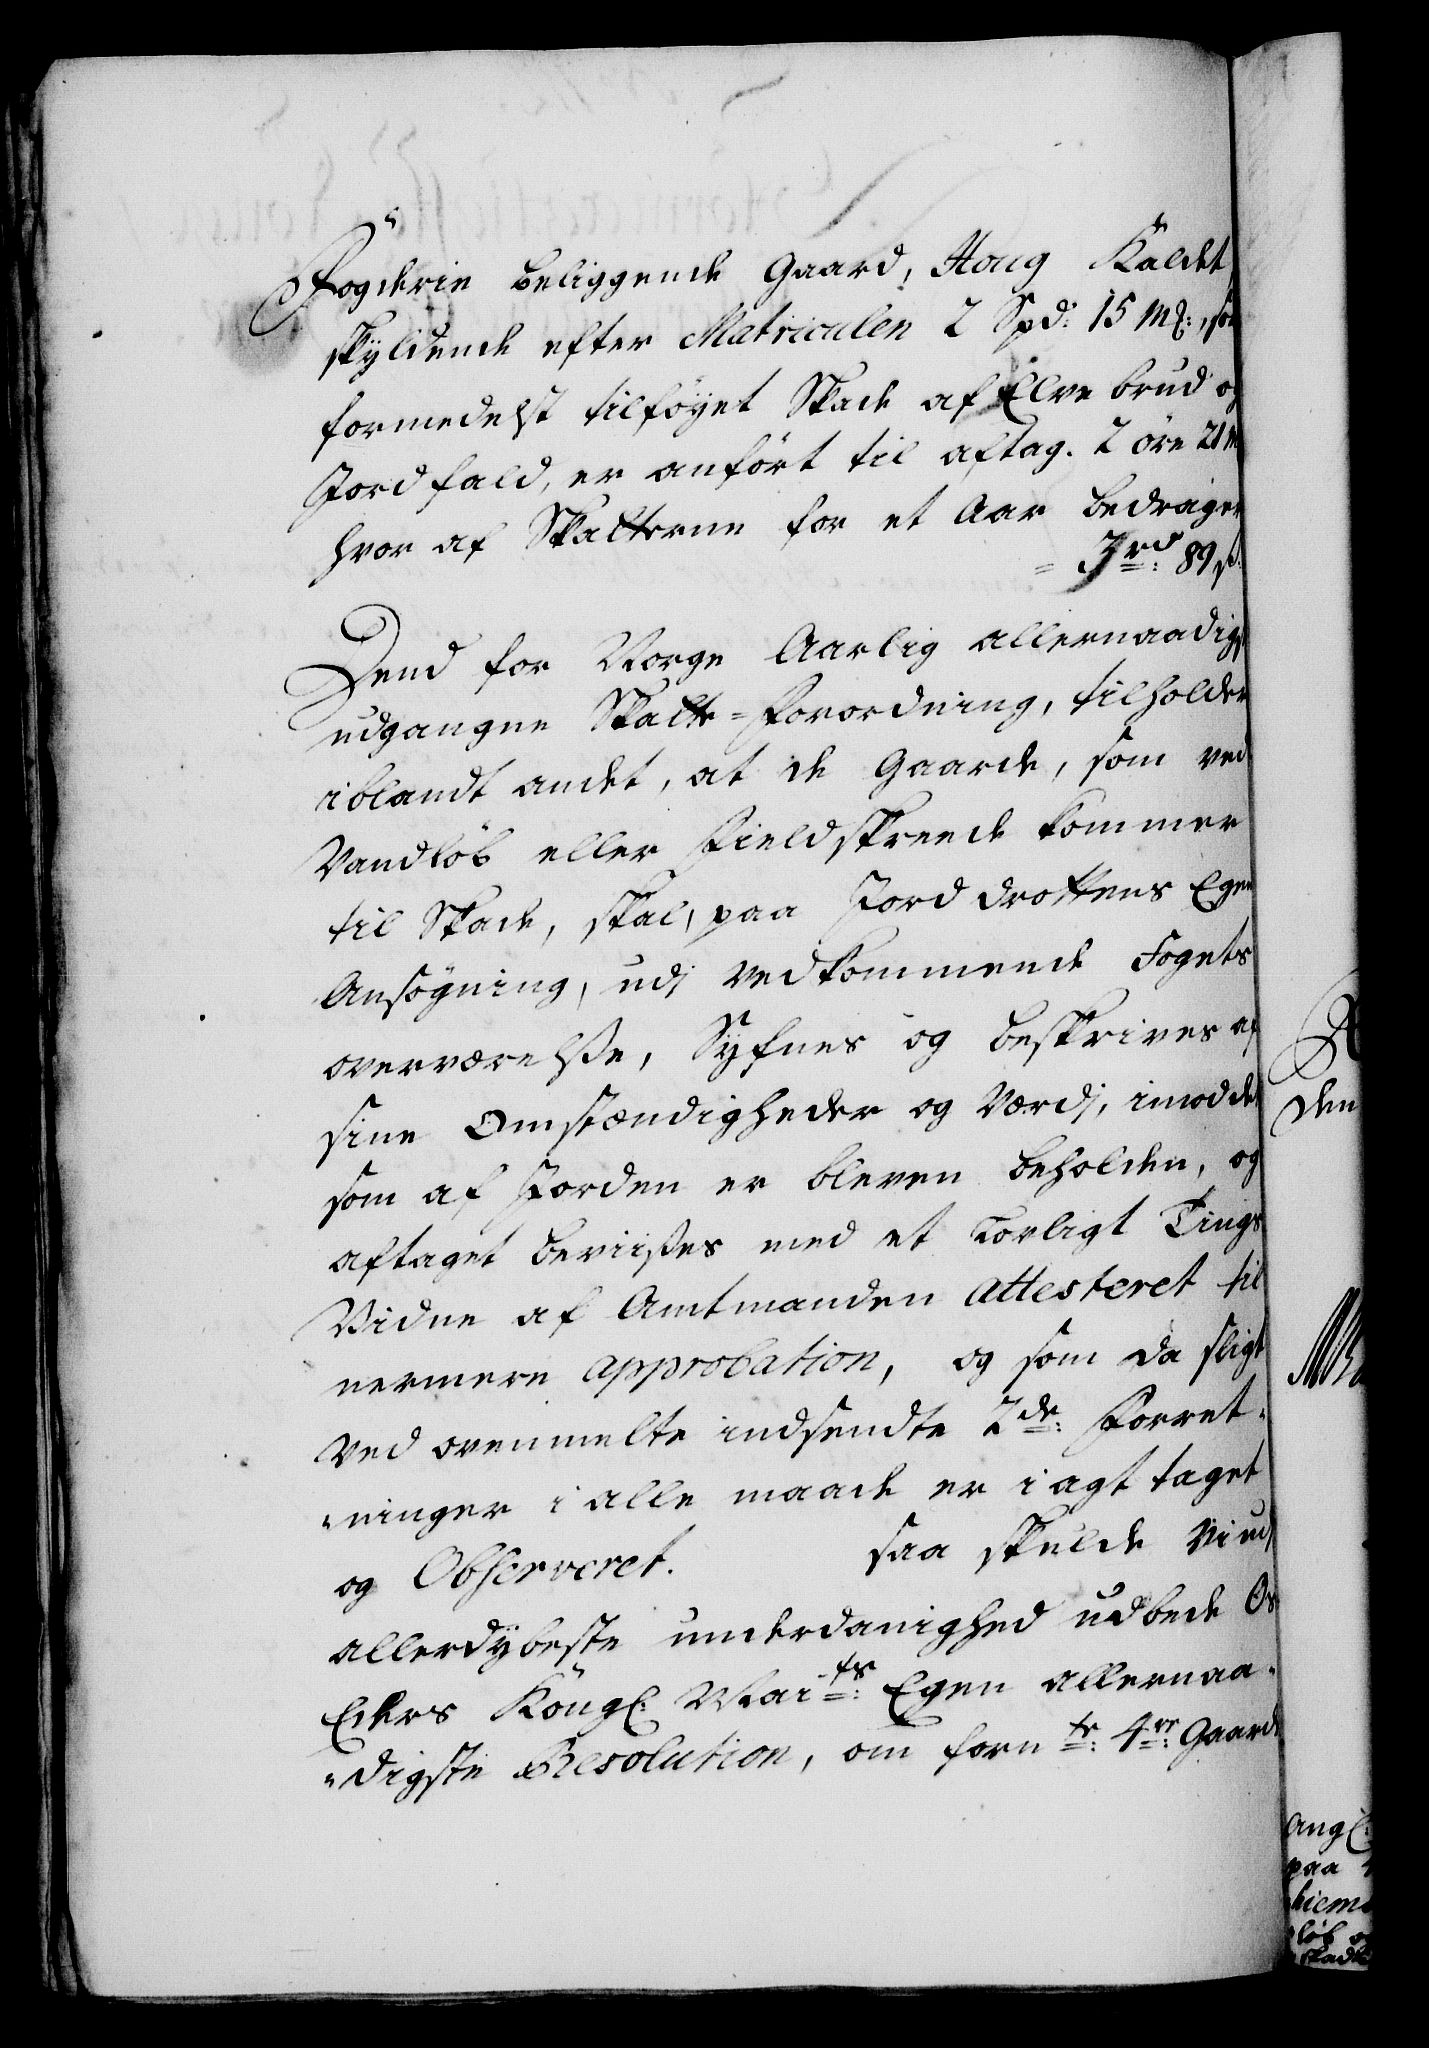 Fogderie beliggende Gaard, Haug Kaldet,
skyldende efter Matriculen 2 Spd: 15 Mk:, som
formedelst tilföyet Skade af Elve brud og
Jordfald, er anført til aftag. 2 öre 21 M
hvor af Skatterne for et Aar bedrager
= 3 rd: 89 s:
Dend for Norge Aarlig allernaadigst
udgangne Skatte-forordning, tilholder
iblandt andet, at de Gaarde, som ved
Vandløb eller Fieldskreede kommer
til Skade, skal, paa Jorddrottens Egen
Ansögning, udj vedkommende Fogets
overværelsse, Syfnes og beskrives af
sine Omstændigheder og Værdj, imod det
som af Jorden er bleven beholden, og
aftaget beviises med et Lovligt Tings
Vidne af Amtmanden attesteret til
nermere approbation, og som da sligt
ved ovenmelte indsendte 2de: Forret-
ninger i alle maade er i agt taget
og Observeret. saa skulde vi udj
allerdybeste underdanighed udbede Os
Eders Kongl: May ts: Egen allernaa-
digste Resolution, om forn te: 4re: Gaarde
den
Angl:
paa
hiem
løb
skade